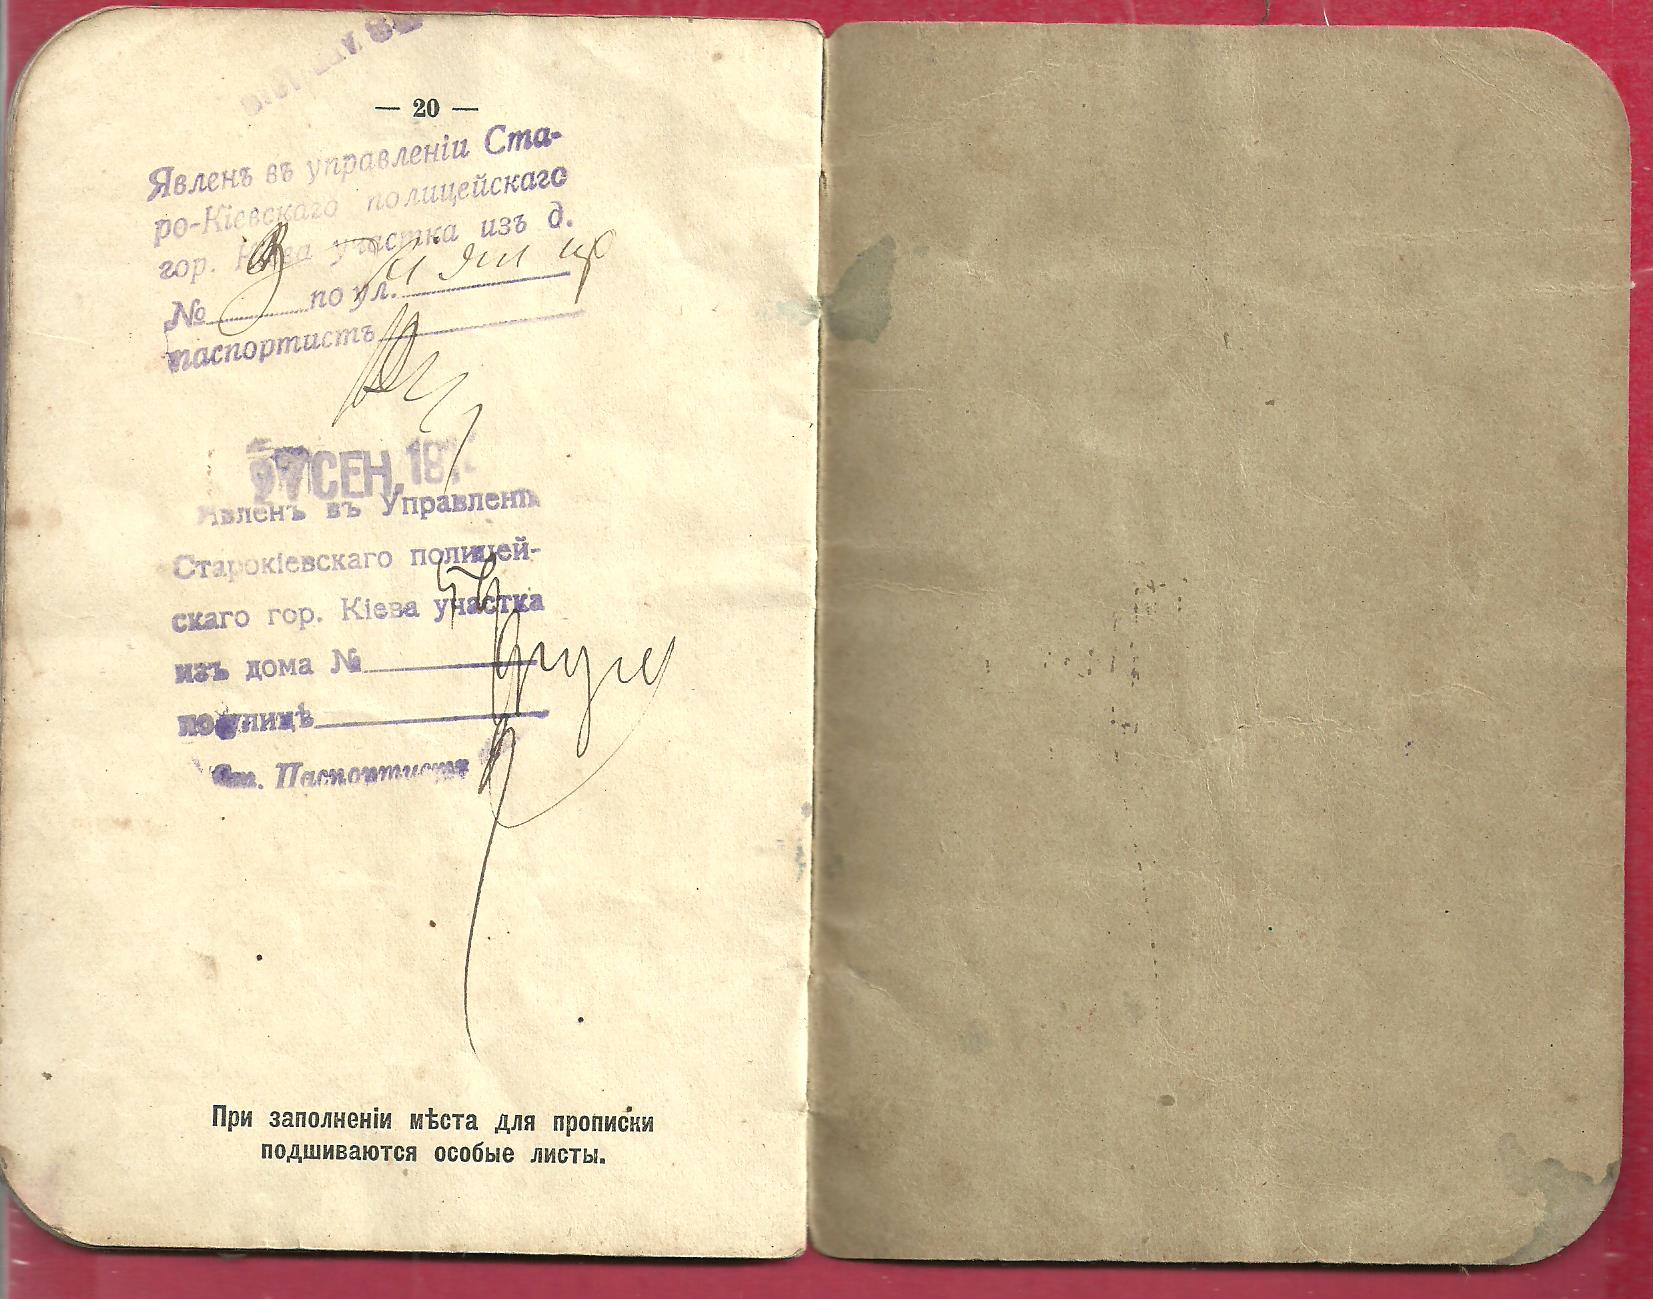 — 20 —
Явленъ въ управленіи Ста-
ро-Кіевскаго полицейскаго
гор. Кіева участка изъ д.
№ по ул.
паспортистъ
27 СЕН. 191
Явленъ въ Управленіи
Старокіевскаго полицей-
скаго гор. Кіева участка
изъ дома №
по улицѣ
Ст. Паспортистъ
При заполненіи мѣста для прописки
подшиваются особые листы.